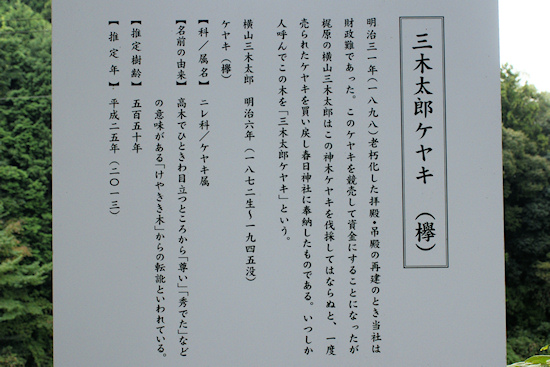 三木太郎ケヤキ (欅)
明治三一年(一八九八)老朽化した拝殿・吊殿の再建のとき当社は
財政難であった。このケヤキを競売して資金にすることになったが
梶原の横山三木太郎はこの神木ケヤキを伐採してはならぬと、一度
売られたケヤキを買い戻し春日神社に奉納したものである。いつしか
人呼んでこの木を「三木太郎ケヤキ」という。
横山三木太郎 明治六年(一八七二生〜一九四五没)
ケヤキ(欅)
【科/属名】ニレ科/ケヤキ属
【名前の由来】高木でひときわ目立つところから「尊い」「秀でた」など
の意味がある「けやきき木」からの転訛といわれている。
【推定樹齢】五百五十年
【推定年】平成二五年(二〇一三)